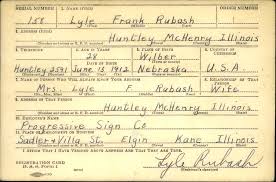 SERIAL NUMBER 1. NAME (Print) ORDER NUMBER
158 Lyle Frank Rubash
2. ADDRESS (Print)
Huntley McHenry Illinois
3. TELEPHONE 4. AGE IN YEARS 5. PLACE OF BIRTH 6. COUNTRY OF CITIZENSHIP
28 Wilber
Huntley 2591 June 13 1912 Nebraska U.S.A.
7. NAME OF PERSON WHO WILL ALWAYS KNOW YOUR ADDRESS 8. RELATIONSHIP OF THAT PERSON
Mrs Lyle F Rubash Wife
9. ADDRESS OF THAT PERSON
Huntley McHenry Illinois
10. EMPLOYER'S NAME
Progressive Sign Co
11. PLACE OF EMPLOYMENT OR BUSINESS
Sadler & Villa St. Elgin Kane Illinois
I AFFIRM THAT I HAVE VERIFIED ABOVE ANSWERS AND THAT THEY ARE TRUE.
REGISTRATION CARD
D. S. S. Form 1
Lyle Rubash